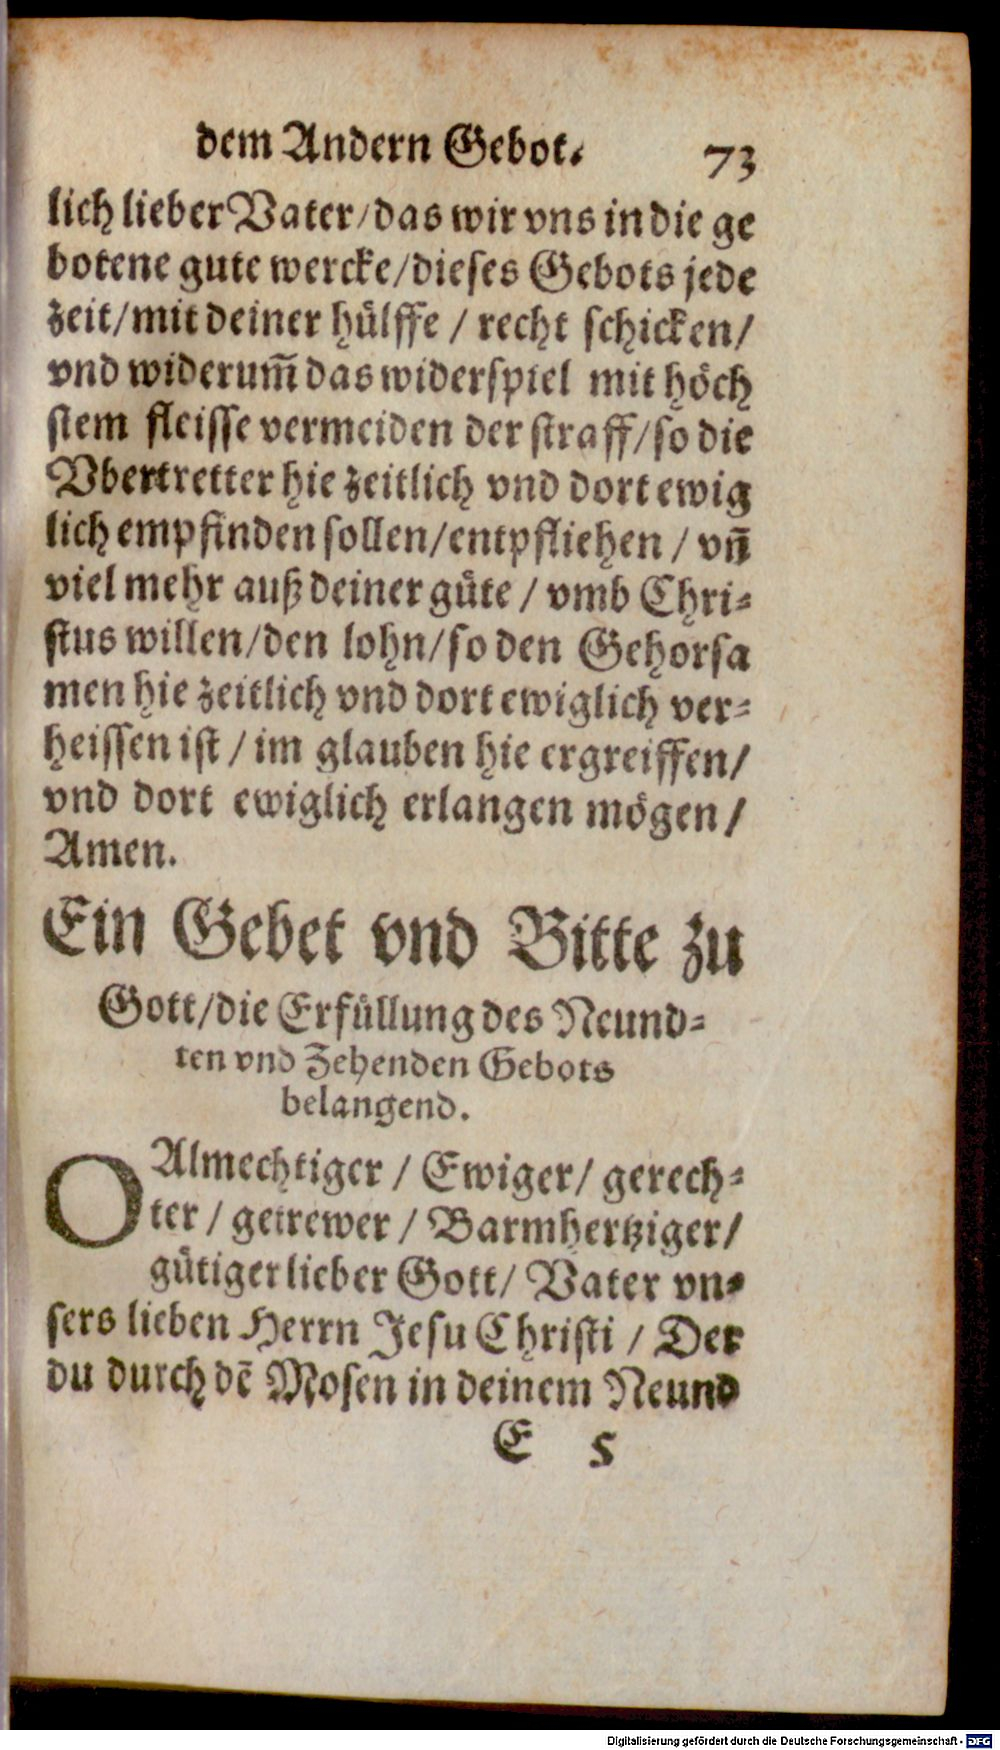 dem Andern Gebot. 73
lich lieber Vater/das wir vns in die ge
botene gute wercke/dieses Gebots jede
zeit/mit deiner hülffe / recht schicken/
vnd widerum̃ das widerspiel mit höch
stem fleisse vermeiden der straff/so die
Vbertretter hie zeitlich vnd dort ewig
lich empfinden sollen/entpfliehen / vñ
viel mehr auß deiner güte / vmb Chri-
stus willen/den lohn/so den Gehorsa
men hie zeitlich vnd dort ewiglich ver-
heissen ist / im glauben hie ergreiffen/
vnd dort ewiglich erlangen mögen/
Amen.
Ein Gebet vnd Bitte zu
Gott/die Erfüllung des Neund-
ten vnd Zehenden Gebots
belangend.
O Almechtiger / Ewiger/ gerech-
ter / getrewer / Barmhertziger/
gütiger lieber Gott/ Vater vn-
sers lieben Herrn Jesu Christi / Der
du durch dē Mosen in deinem Neund
E 5
Digitalisierung gefördert durch die Deutsche Forschungsgemeinschaft - DFG